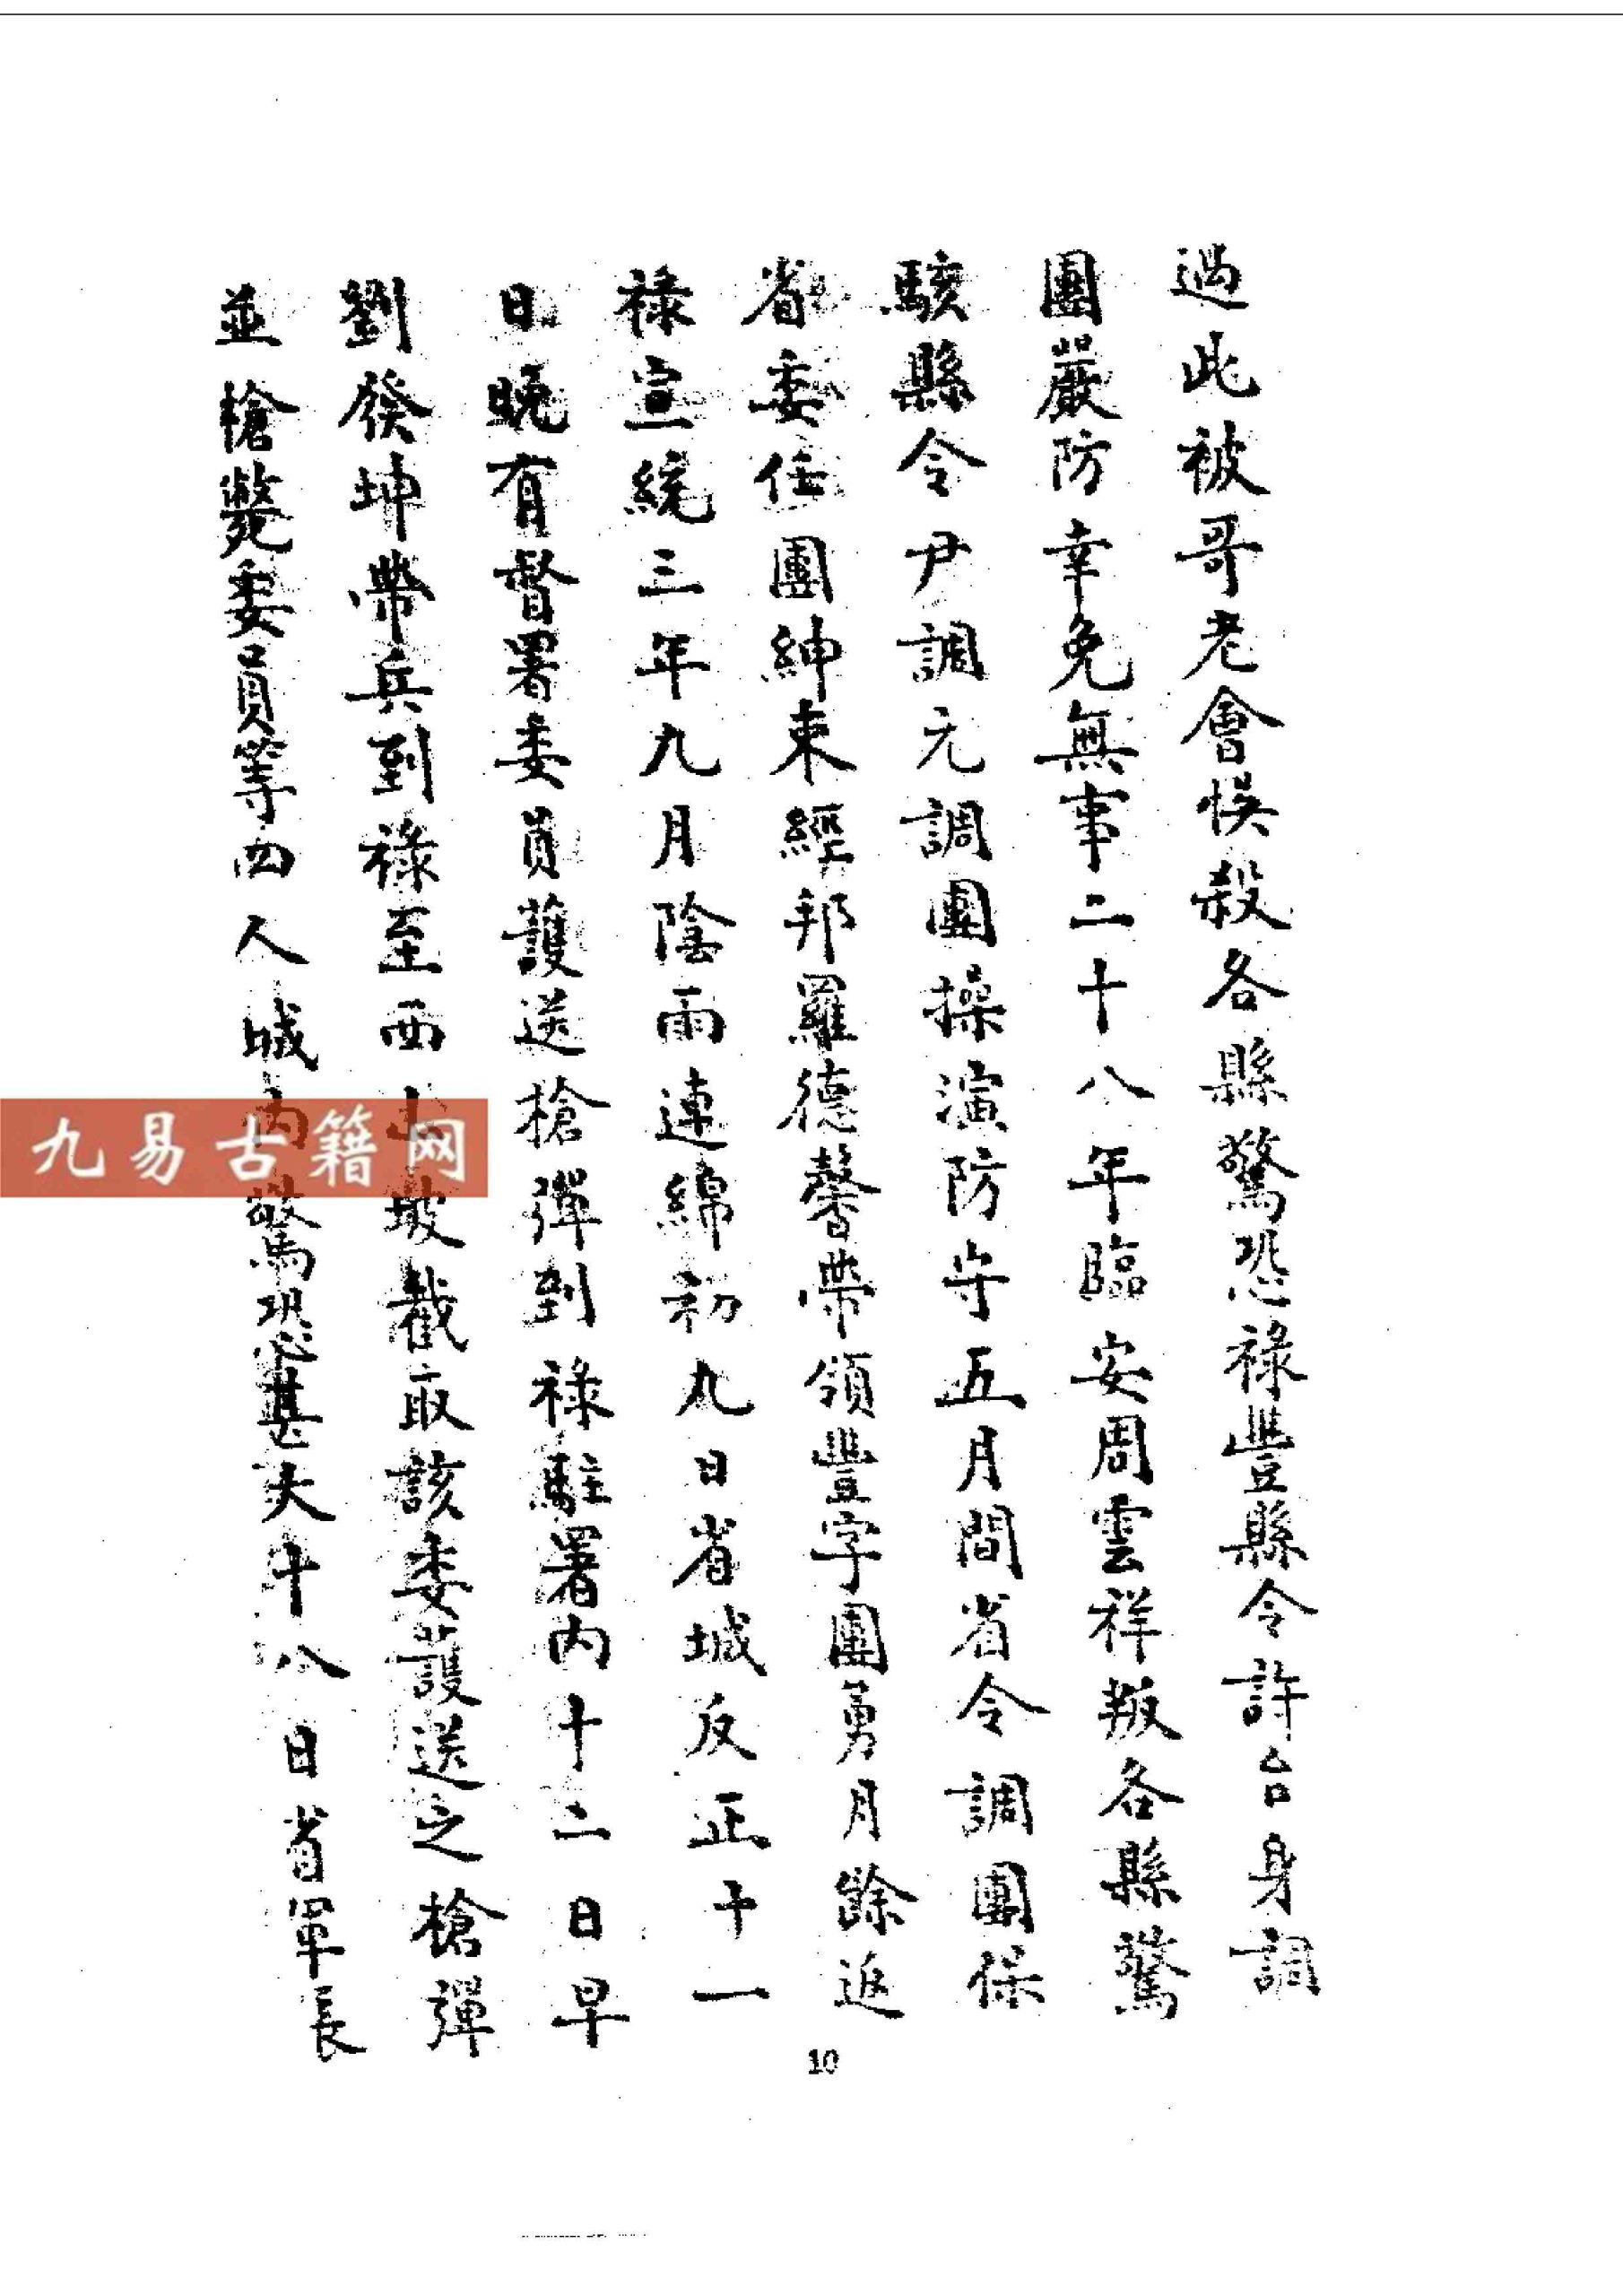 過此被哥老會悞殺各縣驚恐祿豐縣令許台身調
團嚴防幸免無事二十八年臨安周雲祥叛各縣驚
駭縣令尹調元調團操演防守五月間省令調團保
省委任團紳束經邦羅德馨帶領豐字團勇月餘返
祿宣統三年九月陰雨連綿初九日省城反正十一
日晚有督署委員護送槍彈到祿駐署內十二日早
劉發坤帶兵到祿至西山坡截取該委護送之槍彈
並槍斃委員等四人城內驚恐甚大十八日省軍長
九易古籍网
10